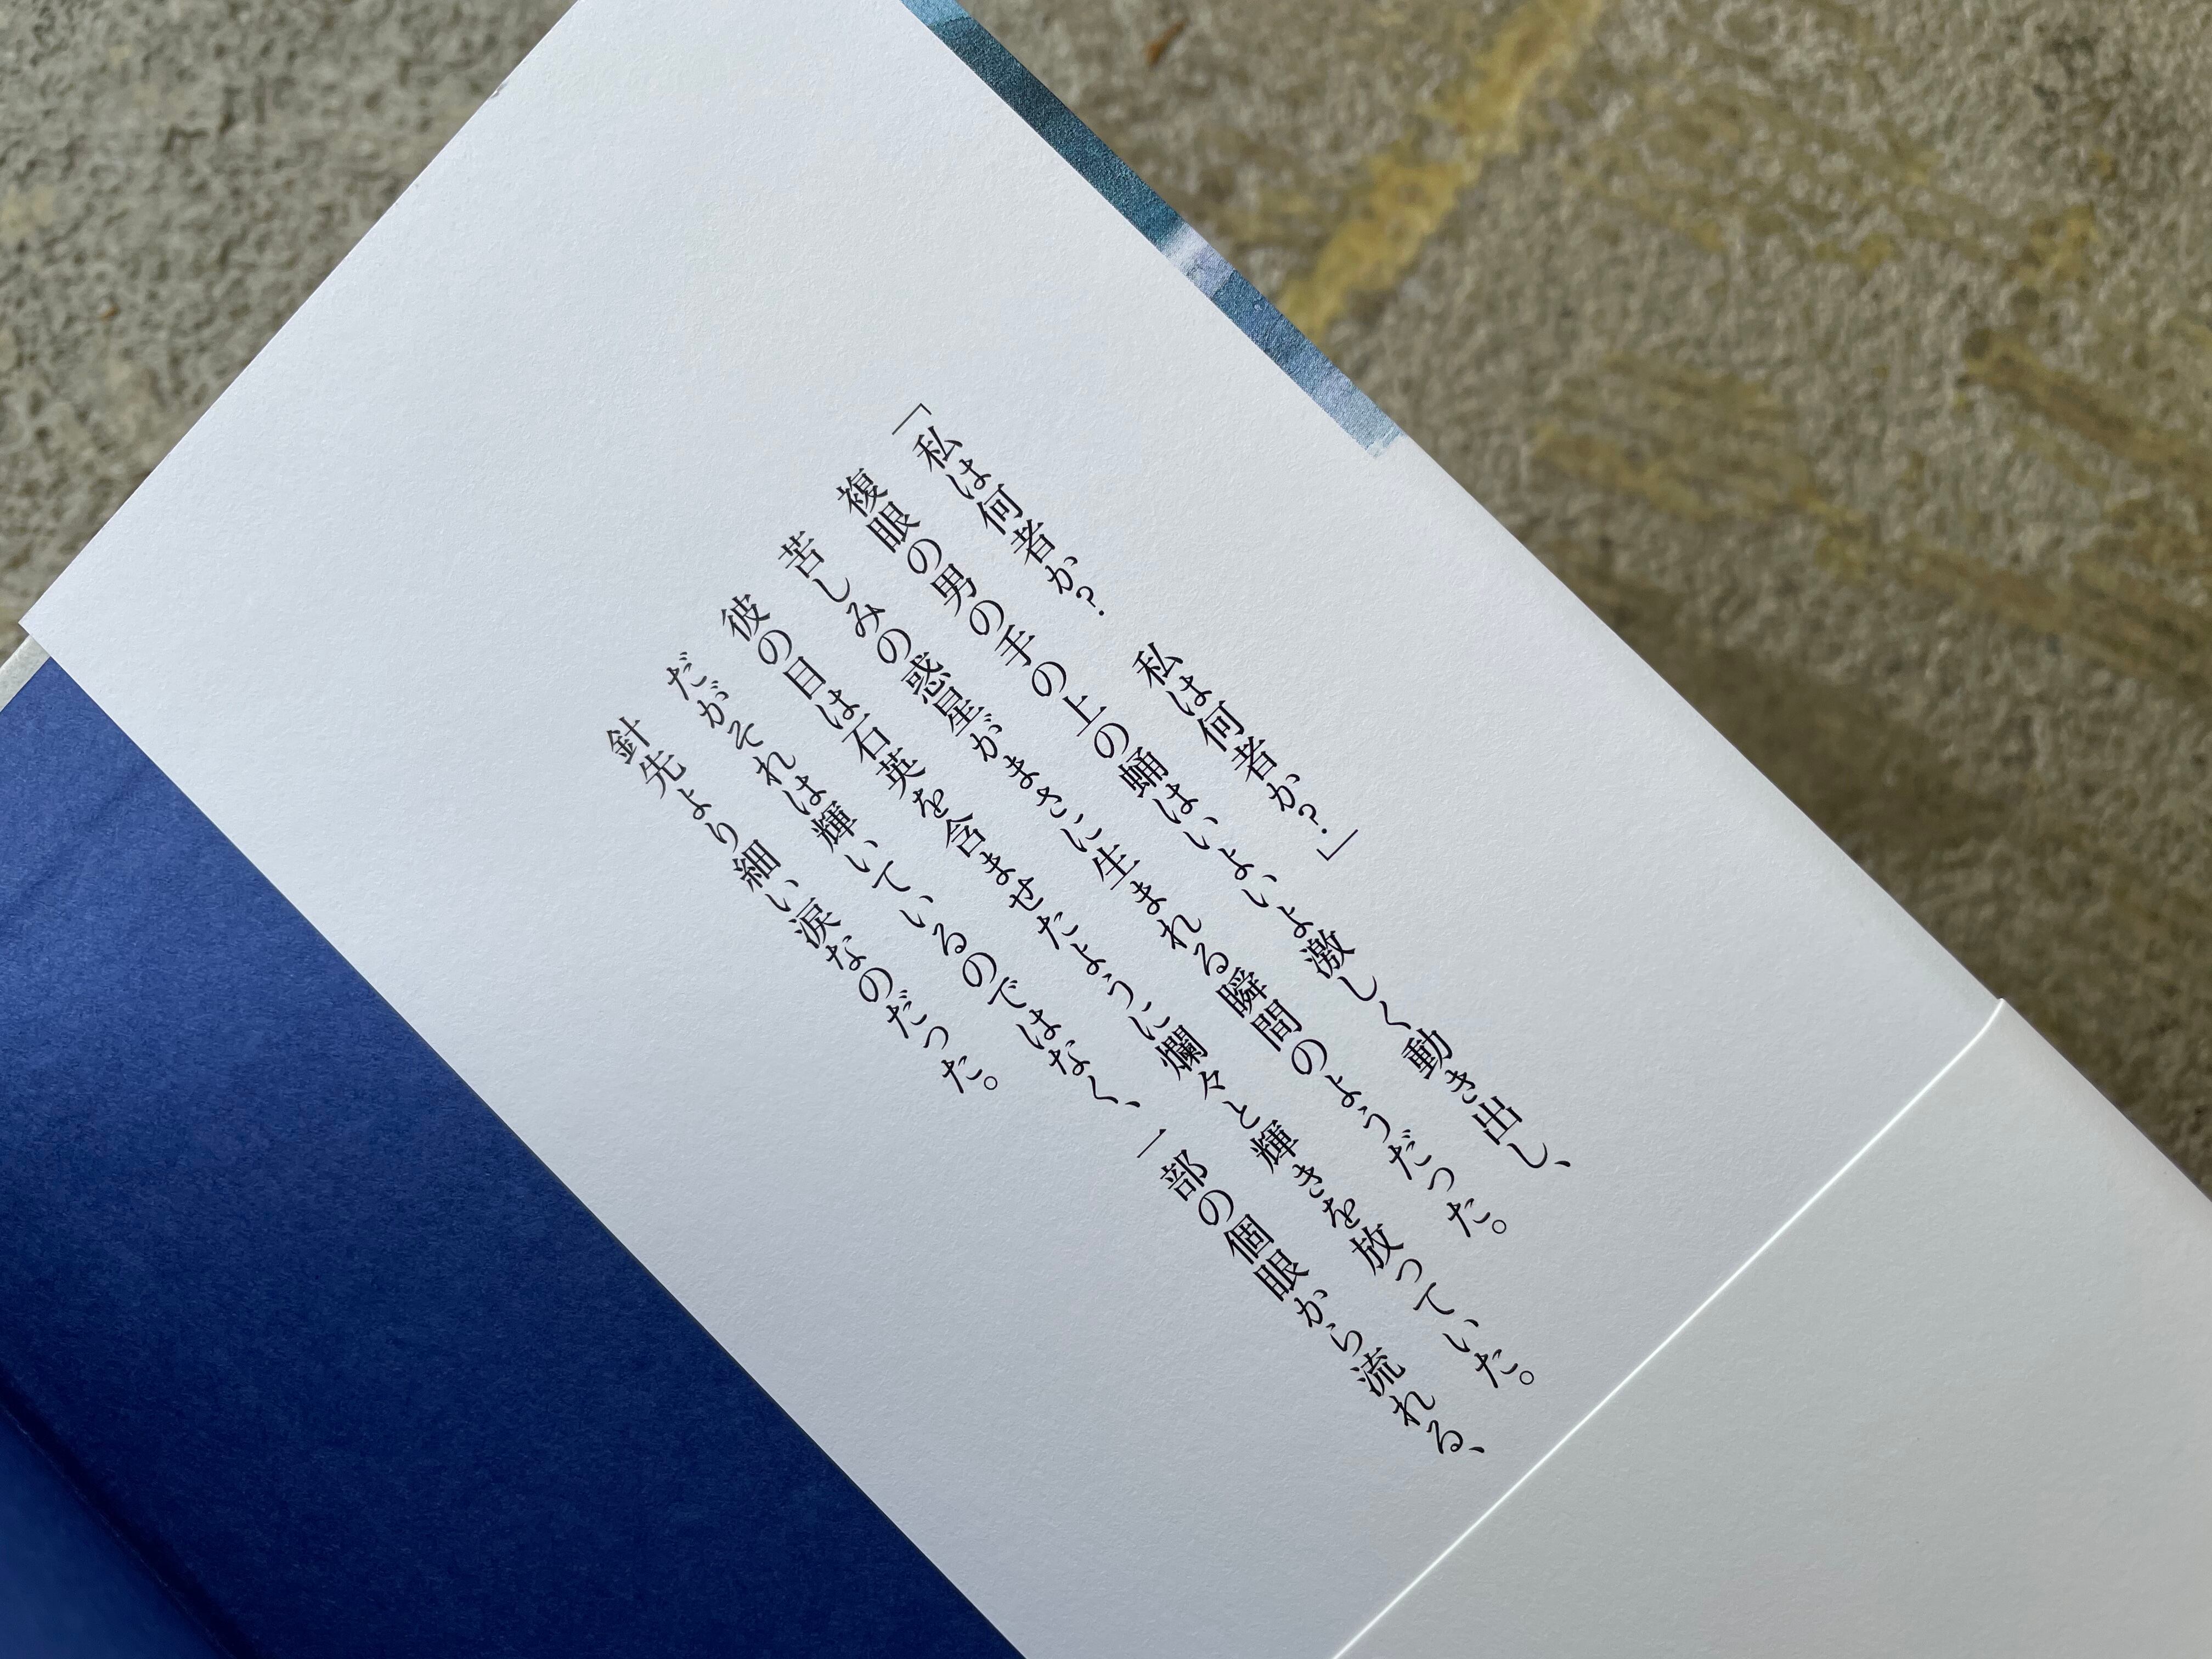 「私は何者か? 私は何者か?」
複眼の男の手の上の蛹はいよいよ激しく動き出し、
苦しみの惑星がまさに生まれる瞬間のようだった。
彼の目は石英を含ませたように爛々と輝きを放っていた。
だがそれは輝いているのではなく、一部の個眼から流れる、
針先より細い涙なのだった。